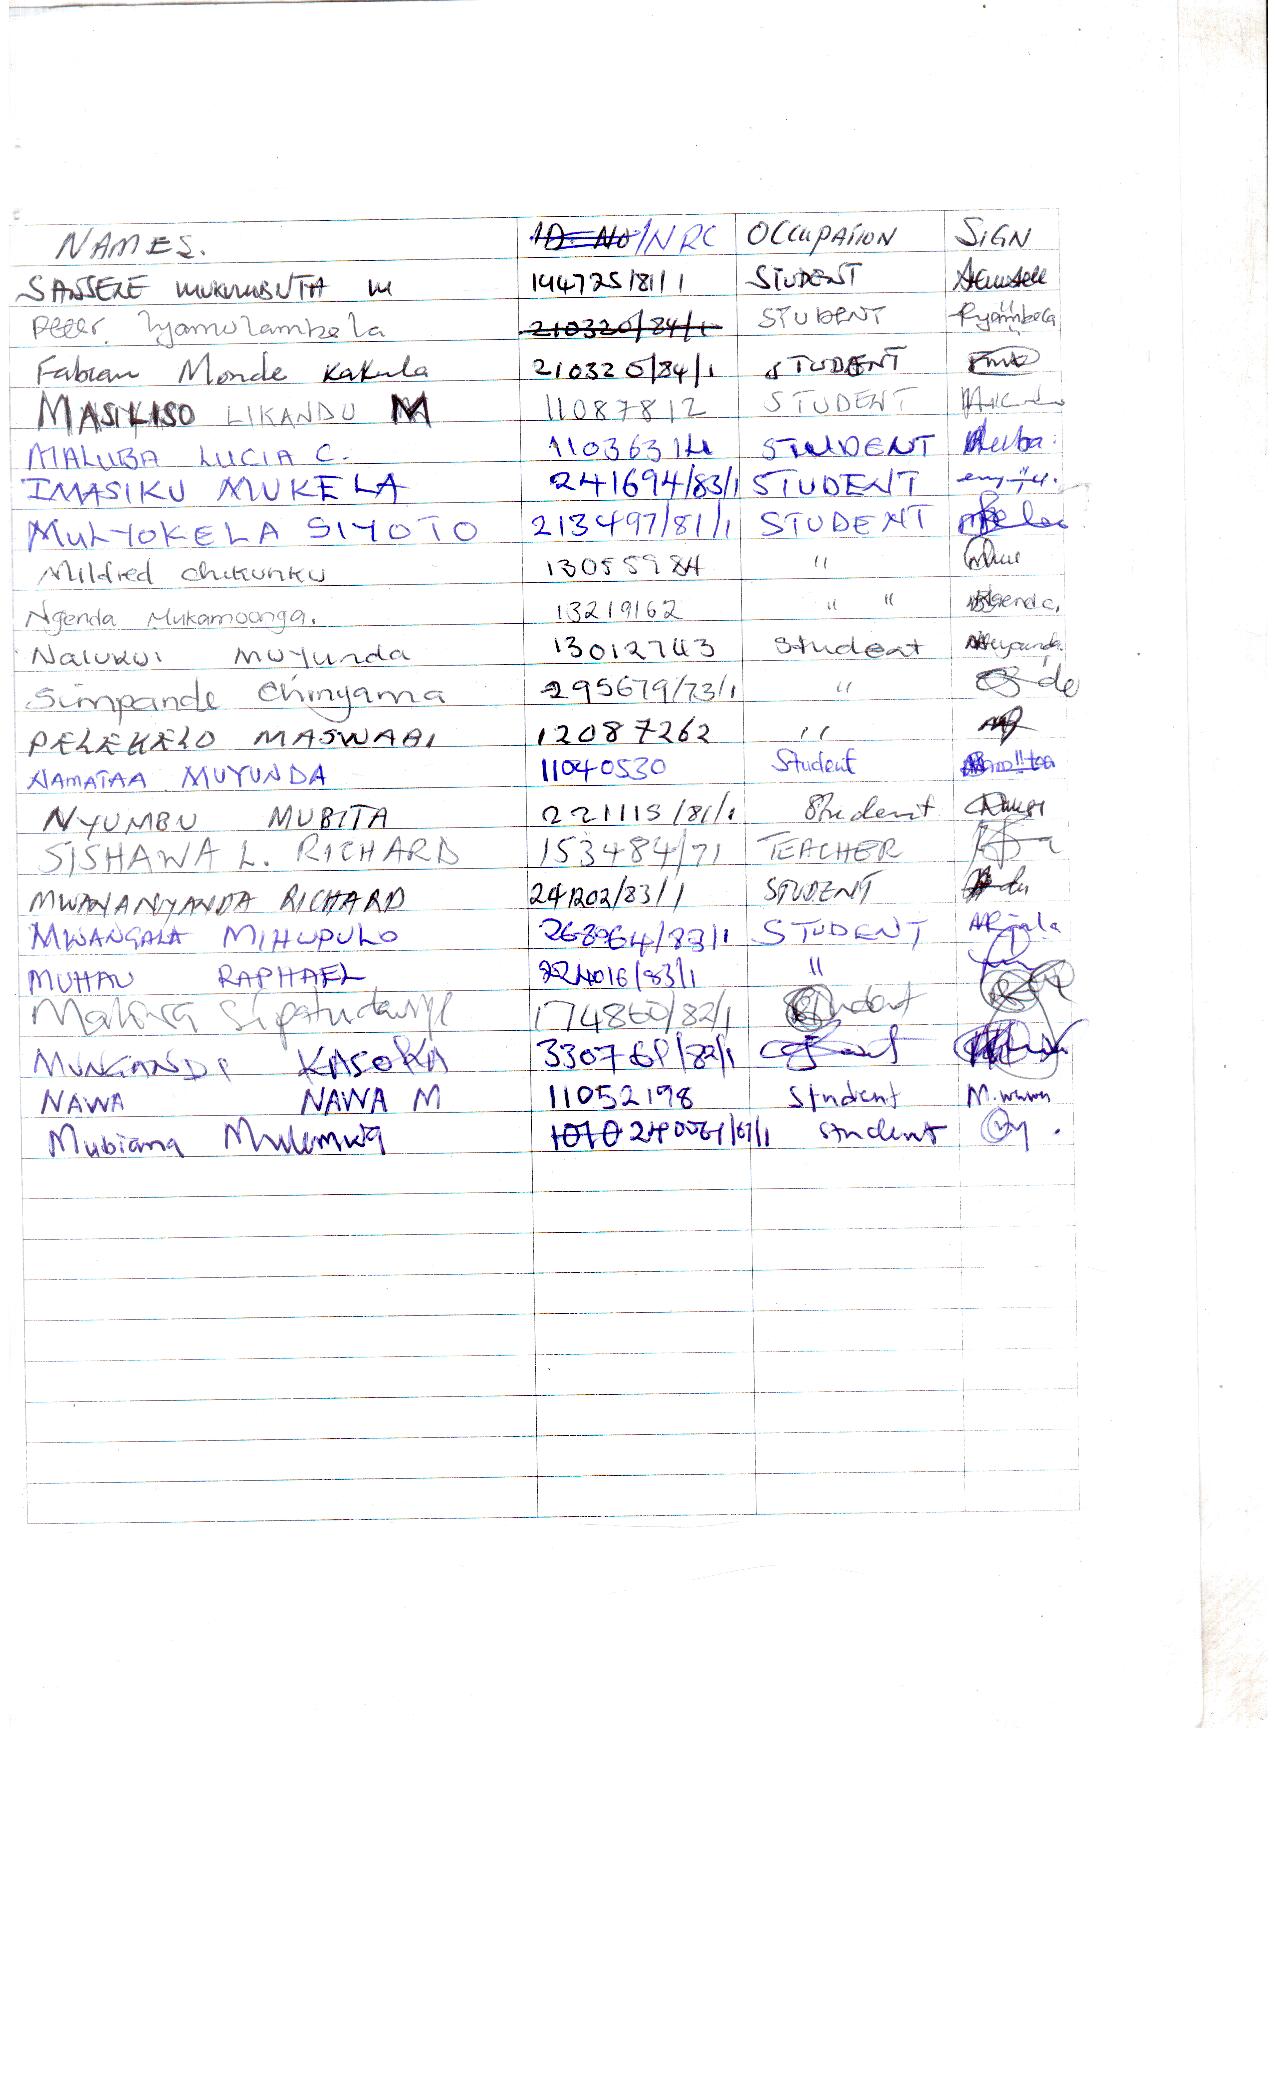 NAMES. ID. No/NRC OCCUPATION SIGN
SANSELE MUKUMBUTA M 144725/81/1 STUDENT
Peter Iyamulambela 210320/84/1 STUDENT
Fabian Monde Kakula 210320/84/1 STUDENT
MASILISO LIKANDU M 11087812 STUDENT
MALUBA LUCIA C. 11036314 STUDENT
IMASIKU MUKELA 241694/83/1 STUDENT
MULYOKELA SIYOTO 213497/81/1 STUDENT
Mildred Chikunku 13055984 "
Ngenda Mukamoonga. 13219162 " "
Nalukui Muyunda 13012743 Student
Simpande Chinyama 295679/73/1 "
PELEKELO MASWABI 12087262 "
NAMATAA MUYUNDA 11040530 Student
NYUMBU MUBITA 221115/81/1 Student
SISHAWA L. RICHARD 153484/71 TEACHER
MWANANYANDA RICHARD 241202/83/1 STUDENT
MWANGALA MIHUPULO /83/1 STUDENT
MUHAU RAPHAEL 224016/83/1 "
174860/82/1 Student
KASOKA /82/1
NAWA NAWA M 11052198 Student
Mubiana Mulemwa student